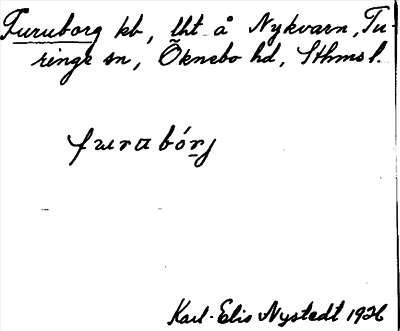 Furuborg kb, lht å Nykvarn, Tu-
ringe sn, Öknebo hd, Sthms l.
furubórj
Karl-Elis Nystedt 1926